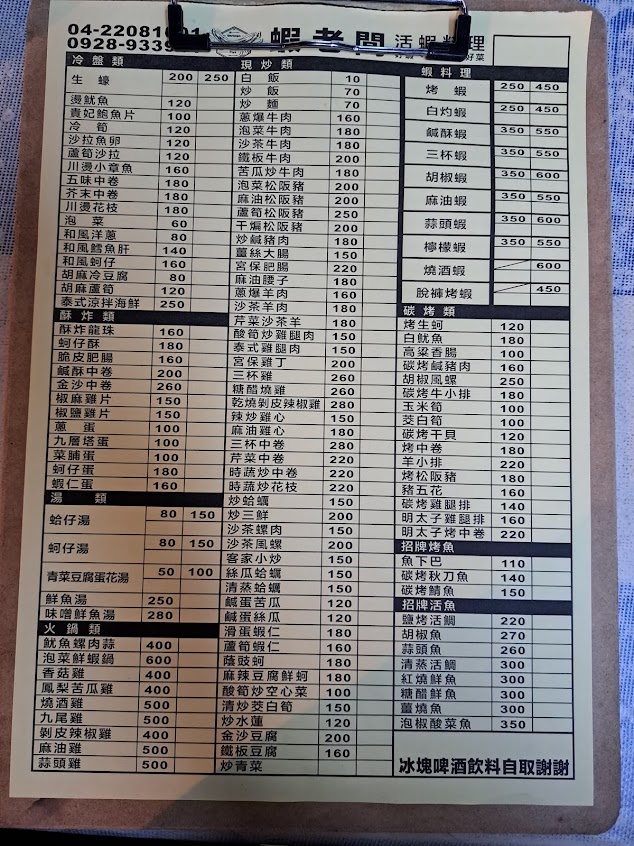 04-22081
0928-9339
蝦老闆 活蝦料理
好菜
冷盤類
生蠔 200 250
燙魷魚 120
貴妃鮑魚片 100
冷筍 120
沙拉魚卵 120
蘆筍沙拉 120
川燙小章魚 160
五味中卷 180
芥末中卷 180
川燙花枝 180
泡菜 60
和風洋蔥 80
和風鱈魚肝 140
和風蚵仔 160
胡麻冷豆腐 80
胡麻蘆筍 120
泰式涼拌海鮮 250
酥炸類
酥炸龍珠 160
蚵仔酥 180
脆皮肥腸 160
鹹酥中卷 200
金沙中卷 260
椒麻雞片 150
椒鹽雞片 150
蔥蛋 100
九層塔蛋 100
菜脯蛋 100
蚵仔蛋 180
蝦仁蛋 160
湯類
蛤仔湯 80 150
蚵仔湯 80 150
青菜豆腐蛋花湯 50 100
鮮魚湯 250
味噌鮮魚湯 280
火鍋類
魷魚螺肉蒜 400
泡菜鮮蝦鍋 600
香菇雞 400
鳳梨苦瓜雞 400
燒酒雞 500
九尾雞 500
剝皮辣椒雞 400
麻油雞 500
蒜頭雞 500
現炒類
白飯 10
炒飯 70
炒麵 70
蔥爆牛肉 160
泡菜牛肉 180
沙茶牛肉 180
鐵板牛肉 200
苦瓜炒牛肉 180
泡菜松阪豬 200
麻油松阪豬 200
蘆筍松阪豬 250
干煸松阪豬 200
炒鹹豬肉 180
薑絲大腸 150
宮保肥腸 220
麻油腰子 180
蔥爆羊肉 160
沙茶羊肉 180
芹菜沙茶羊 180
酸筍炒雞腿肉 150
泰式雞腿肉 150
宮保雞丁 200
三杯雞 260
糖醋燒雞 260
乾燒剝皮辣椒雞 280
辣炒雞心 150
麻油雞心 180
三杯中卷 280
芹菜中卷 220
時蔬炒中卷 220
時蔬炒花枝 220
炒蛤蠣 150
炒三鮮 200
沙茶螺肉 150
沙茶風螺 200
客家小炒 150
絲瓜蛤蠣 150
清蒸蛤蠣 150
鹹蛋苦瓜 120
鹹蛋絲瓜 120
滑蛋蝦仁 180
蘆筍蝦仁 160
蔭豉蚵 180
麻辣豆腐鮮蚵 180
酸筍炒空心菜 100
清炒茭白筍 150
炒水蓮 120
金沙豆腐 200
鐵板豆腐 160
炒青菜
蝦料理
烤蝦 250 450
白灼蝦 250 450
鹹酥蝦 350 550
三杯蝦 350 550
胡椒蝦 350 600
麻油蝦 350 550
蒜頭蝦 350 600
檸檬蝦 350 550
燒酒蝦 600
脫褲烤蝦 450
碳烤類
烤生蚵 120
白魷魚 180
高粱香腸 100
碳烤鹹豬肉 160
胡椒風螺 250
碳烤牛小排 180
玉米筍 100
茭白筍 100
碳烤干貝 120
烤中卷 180
羊小排 220
烤松阪豬 180
豬五花 160
碳烤雞腿排 140
明太子雞腿排 160
明太子烤中卷 220
招牌烤魚
魚下巴 110
碳烤秋刀魚 140
碳烤鯖魚 150
招牌活魚
鹽烤活鯛 220
胡椒魚 270
蒜頭魚 260
清蒸活鯛 300
紅燒鮮魚 300
糖醋鮮魚 300
薑燒魚 300
泡椒酸菜魚 350
冰塊啤酒飲料自取謝謝